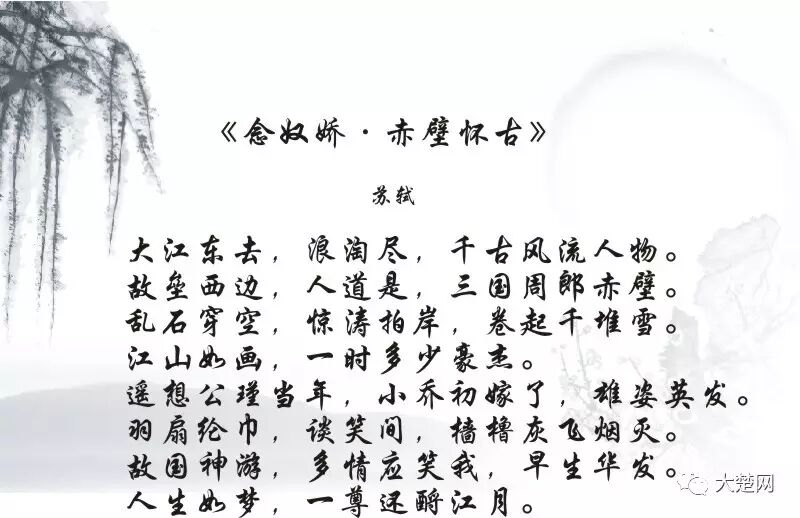 《念奴娇·赤壁怀古》
苏轼
大江东去，浪淘尽，千古风流人物。
故垒西边，人道是，三国周郎赤壁。
乱石穿空，惊涛拍岸，卷起千堆雪。
江山如画，一时多少豪杰。
遥想公瑾当年，小乔初嫁了，雄姿英发。
羽扇纶巾，谈笑间，樯橹灰飞烟灭。
故国神游，多情应笑我，早生华发。
人生如梦，一尊还酹江月。
大楚网